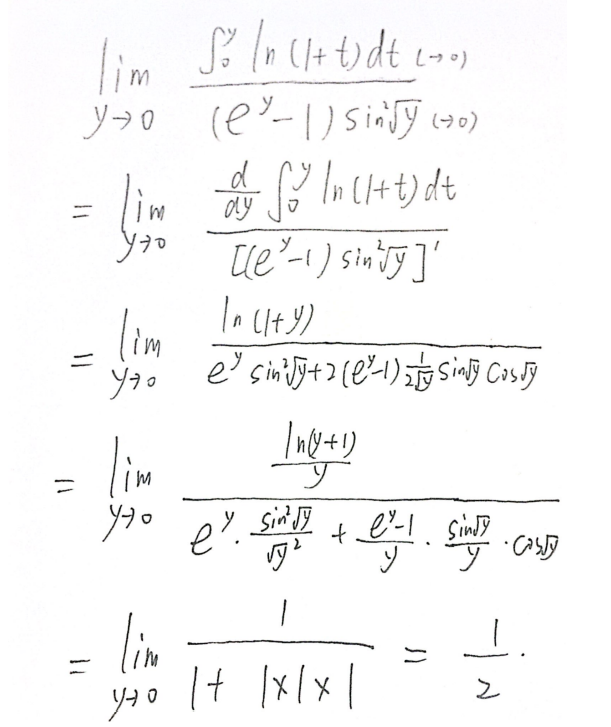 lim_{y→0} \frac{∫_0^y ln(1+t)dt (→0)}{(e^y-1) sin²√y (→0)}
= lim_{y→0} \frac{\frac{d}{dy} ∫_0^y ln(1+t)dt}{[(e^y-1) sin²√y]'}
= lim_{y→0} \frac{ln(1+y)}{e^y sin²√y+2(e^y-1)\frac{1}{2√y} sin√y cos√y}
= lim_{y→0} \frac{\frac{ln(y+1)}{y}}{e^y · \frac{sin²√y}{√y²} + \frac{e^y-1}{y} · \frac{sin√y}{y} · cos√y}
= lim_{y→0} \frac{1}{1+ 1×1×1} = \frac{1}{2}.